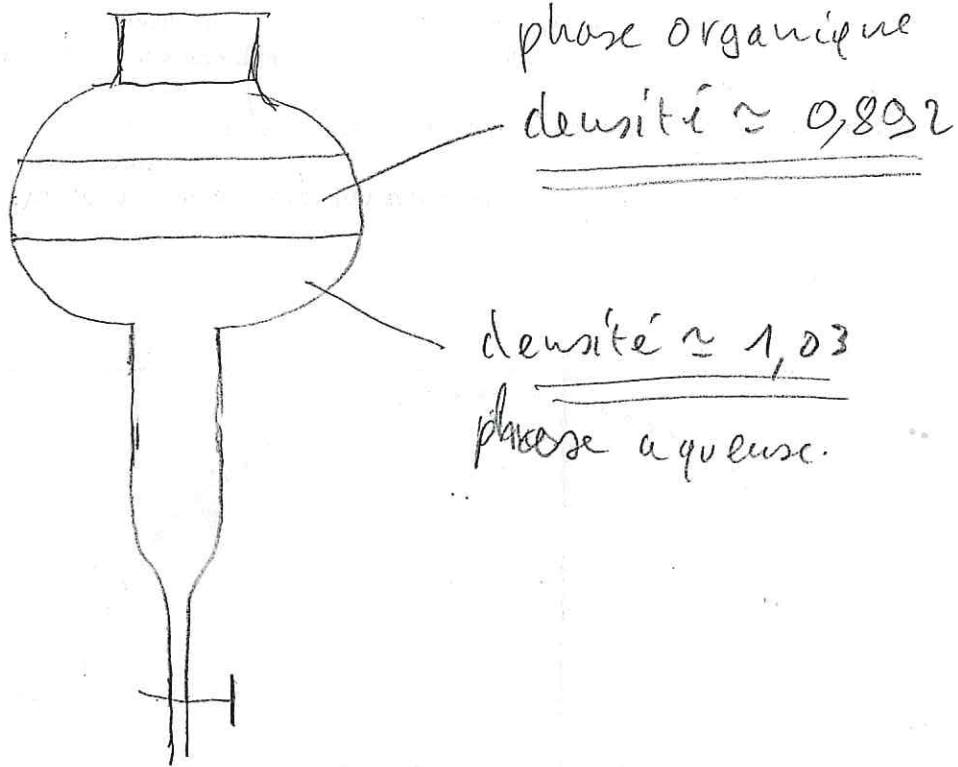 phase organique
densité ≃ 0,892
densité ≃ 1,03
phase aqueuse.